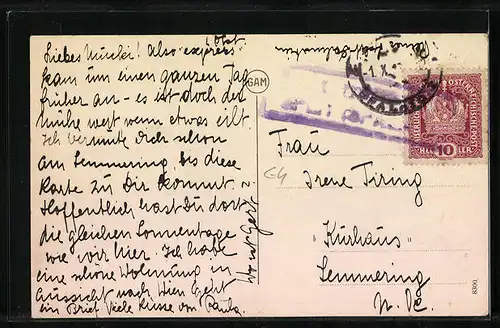 Liebes Mucki! Also express
kam um einen ganzen Tag
früher an - es ist doch der
Mühe wert wenn etwas eilt.
Ich vermute Dich schon
am Semmering bis diese
Karte zu Dir kommt.
Hoffentlich hast Du dort
die gleichen Sonnentage
wie wir hier. Ich habe
eine schöne Wohnung in
Aussicht nach Hier geht
ein Brief Viele Küsse von Paula
GAM
Frau
Irene Tiring
"Kurhaus"
Semmering
N. Oe.
10
HELLER
8300.